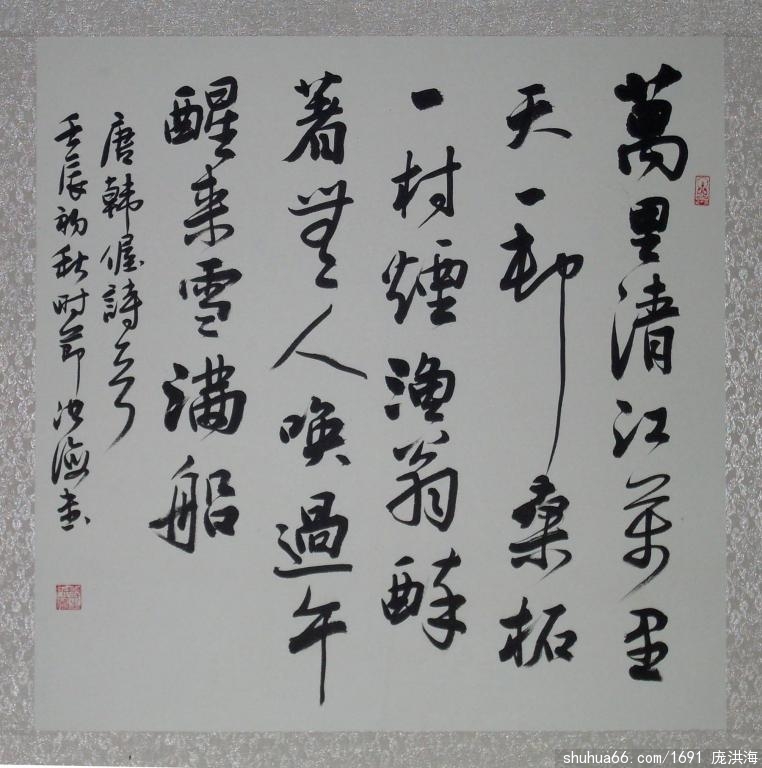 萬里清江萬里
天一邨桑柘
一村煙漁翁醉
著無人喚過午
醒来雪满船
唐韓偓詩
壬辰初秋时节洪海书
shuhua66.com/1691 庞洪海